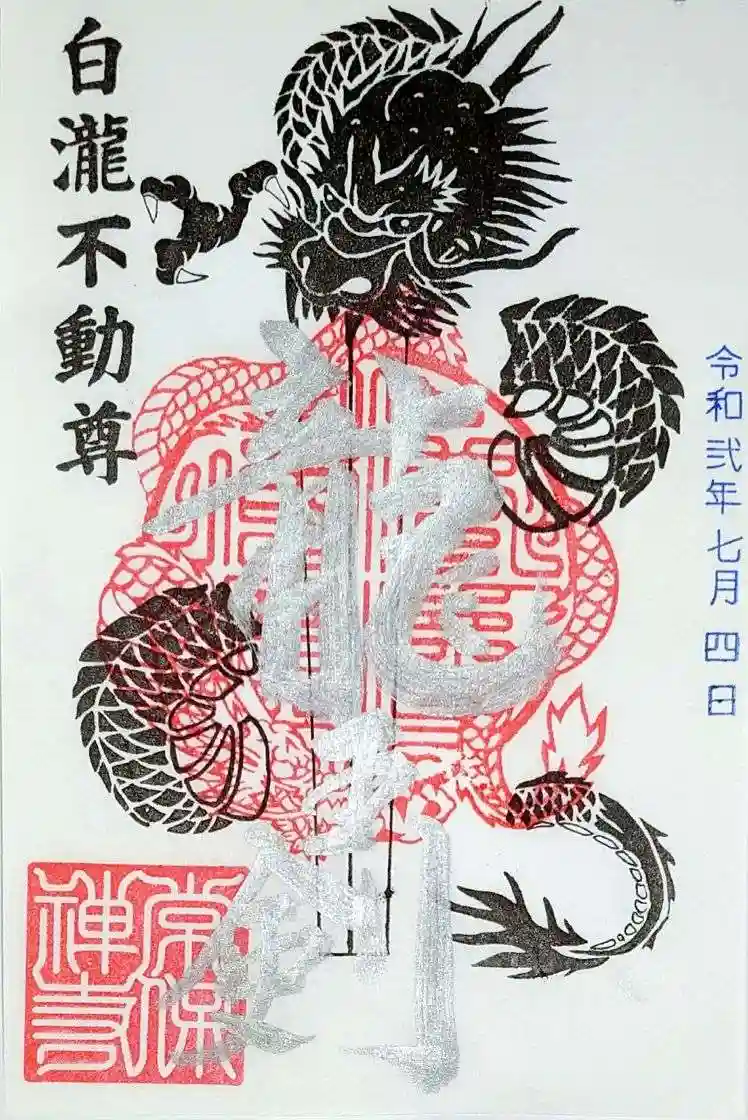 令和弐年七月四日
龍王剣
白瀧不動尊
常保
禅寺